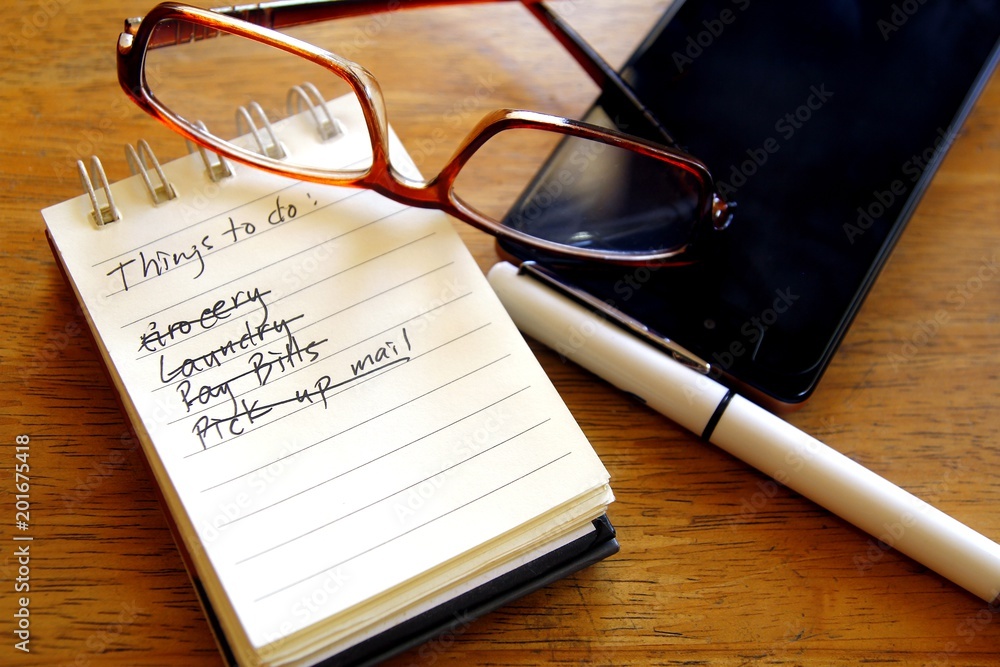 Things to do:
Grocery
Laundry
Pay Bills
Pick up mail
Adobe Stock | #201675418